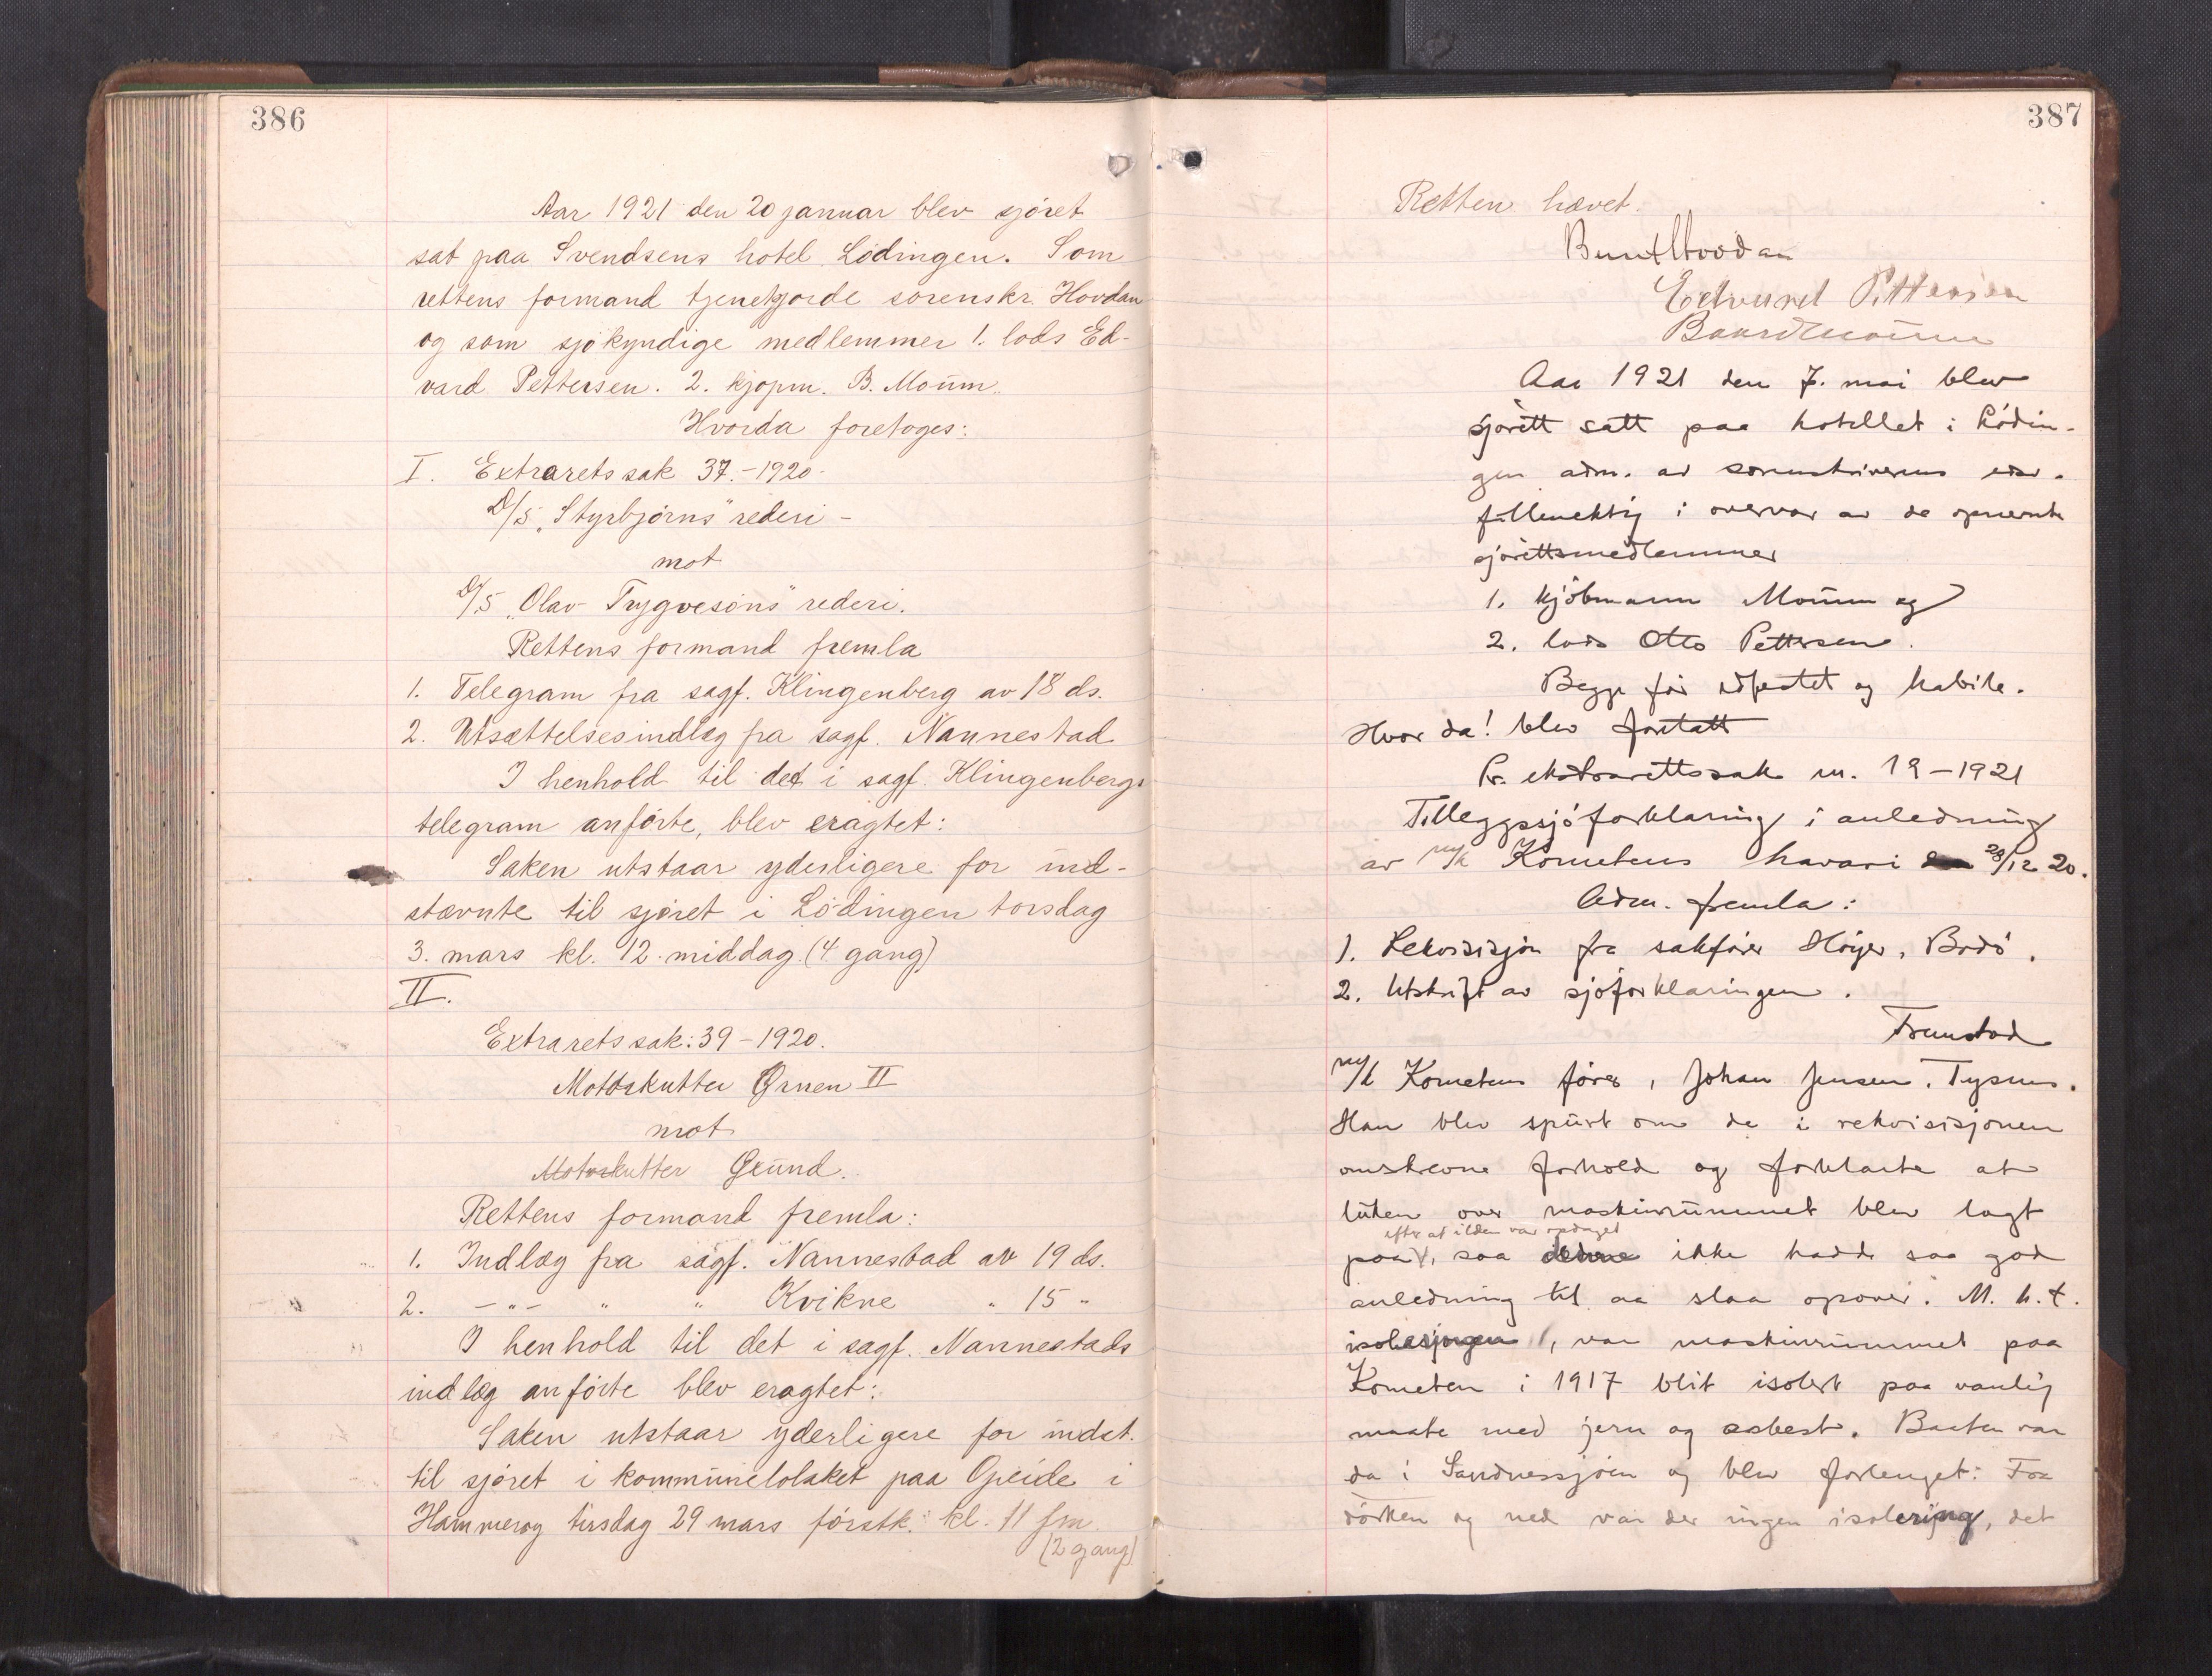 386
Aar 1921 den 20 januar blev sjöret
sat paa Svendsens hotel Lödingen. Som
rettens formand tjenetgjorde sorenskr. Hovdan
og som sjökyndige medlemmer 1. lods Ed-
vard Pettersen. 2. kjøpm. B. Moum.
Hvorda foretoges:
I. Extraretssak 37.-1920.
D/S „Styrbjörns" rederi -
mot
D/S „Olav Trygvesöns" rederi.
Rettens formand fremla
1. Telegram fra sagf. Klingenberg av 18 ds.
2. Utsættelsesindlæg fra sagf. Nannestad
I henhold til det i sagf. Klingenbergs
telegram anförte, blev eragtet:
Saken utstaar yderligere for ind-
stævnte til sjöret i Lödingen torsdag
3. mars kl. 12. middag. (4 gang)
II.
Extraretssak: 39-1920.
Motorkutter Ørnen II
mot
Motorkutter Grund.
Rettens formand fremla:
1. Indlæg fra sagf. Nannestad av 19 ds.
2. -"- " " Kvikne " 15 "
I henhold til det i sagf. Nannestads
indlæg anförte blev eragtet:
Saken utstaar yderligere for indst.
til sjöret i kommunelolaket paa Opeide i
Hammeröy tirsdag 29 mars förstk. kl. 11 fm.
(2 gang)
387
Retten hævet.
Hovdan
Edvard Pettersen
Baard Moum
Aar 1921 den 7. mai blev
sjörett satt paa hotellet i Lödin-
gen adm. av sorenskriverens
fullmektig i overvær av de opnevnte
sjörettsmedlemmer
1. kjöbmann Moum og
2. lods Otto Pettersen.
Begge för edfestet og habile.
Hvor da! blev foretatt
Pr. ekstrarettssak nr. 19-1921
Tilleggssjöforklaring i anledning
av m/k Kometens havari 28/12 20.
Adm. fremla:
1. Rekvisisjon fra sakförer Höyer, Bodö.
2. Utskrift av sjöforklaringen.
Fremstod
m/k Kometens förer, Johan Jensen, Tysnes.
Han blev spurt om de i rekvisisjonen
omskrevne forhold og forklarte at
luken over maskinrummet blev lagt
efter at ilden var opdaget
paa, saa denne ikke hadde saa god
anledning til aa slaa opover. M. h. t.
isolasjonen, var maskinrummet paa
Kometen i 1917 blit isolert paa vanlig
maate med jern og asbest. Baaten var
da i Sandnessjöen og blev forlenget. Fra
dörken og ned var der ingen isolering, det